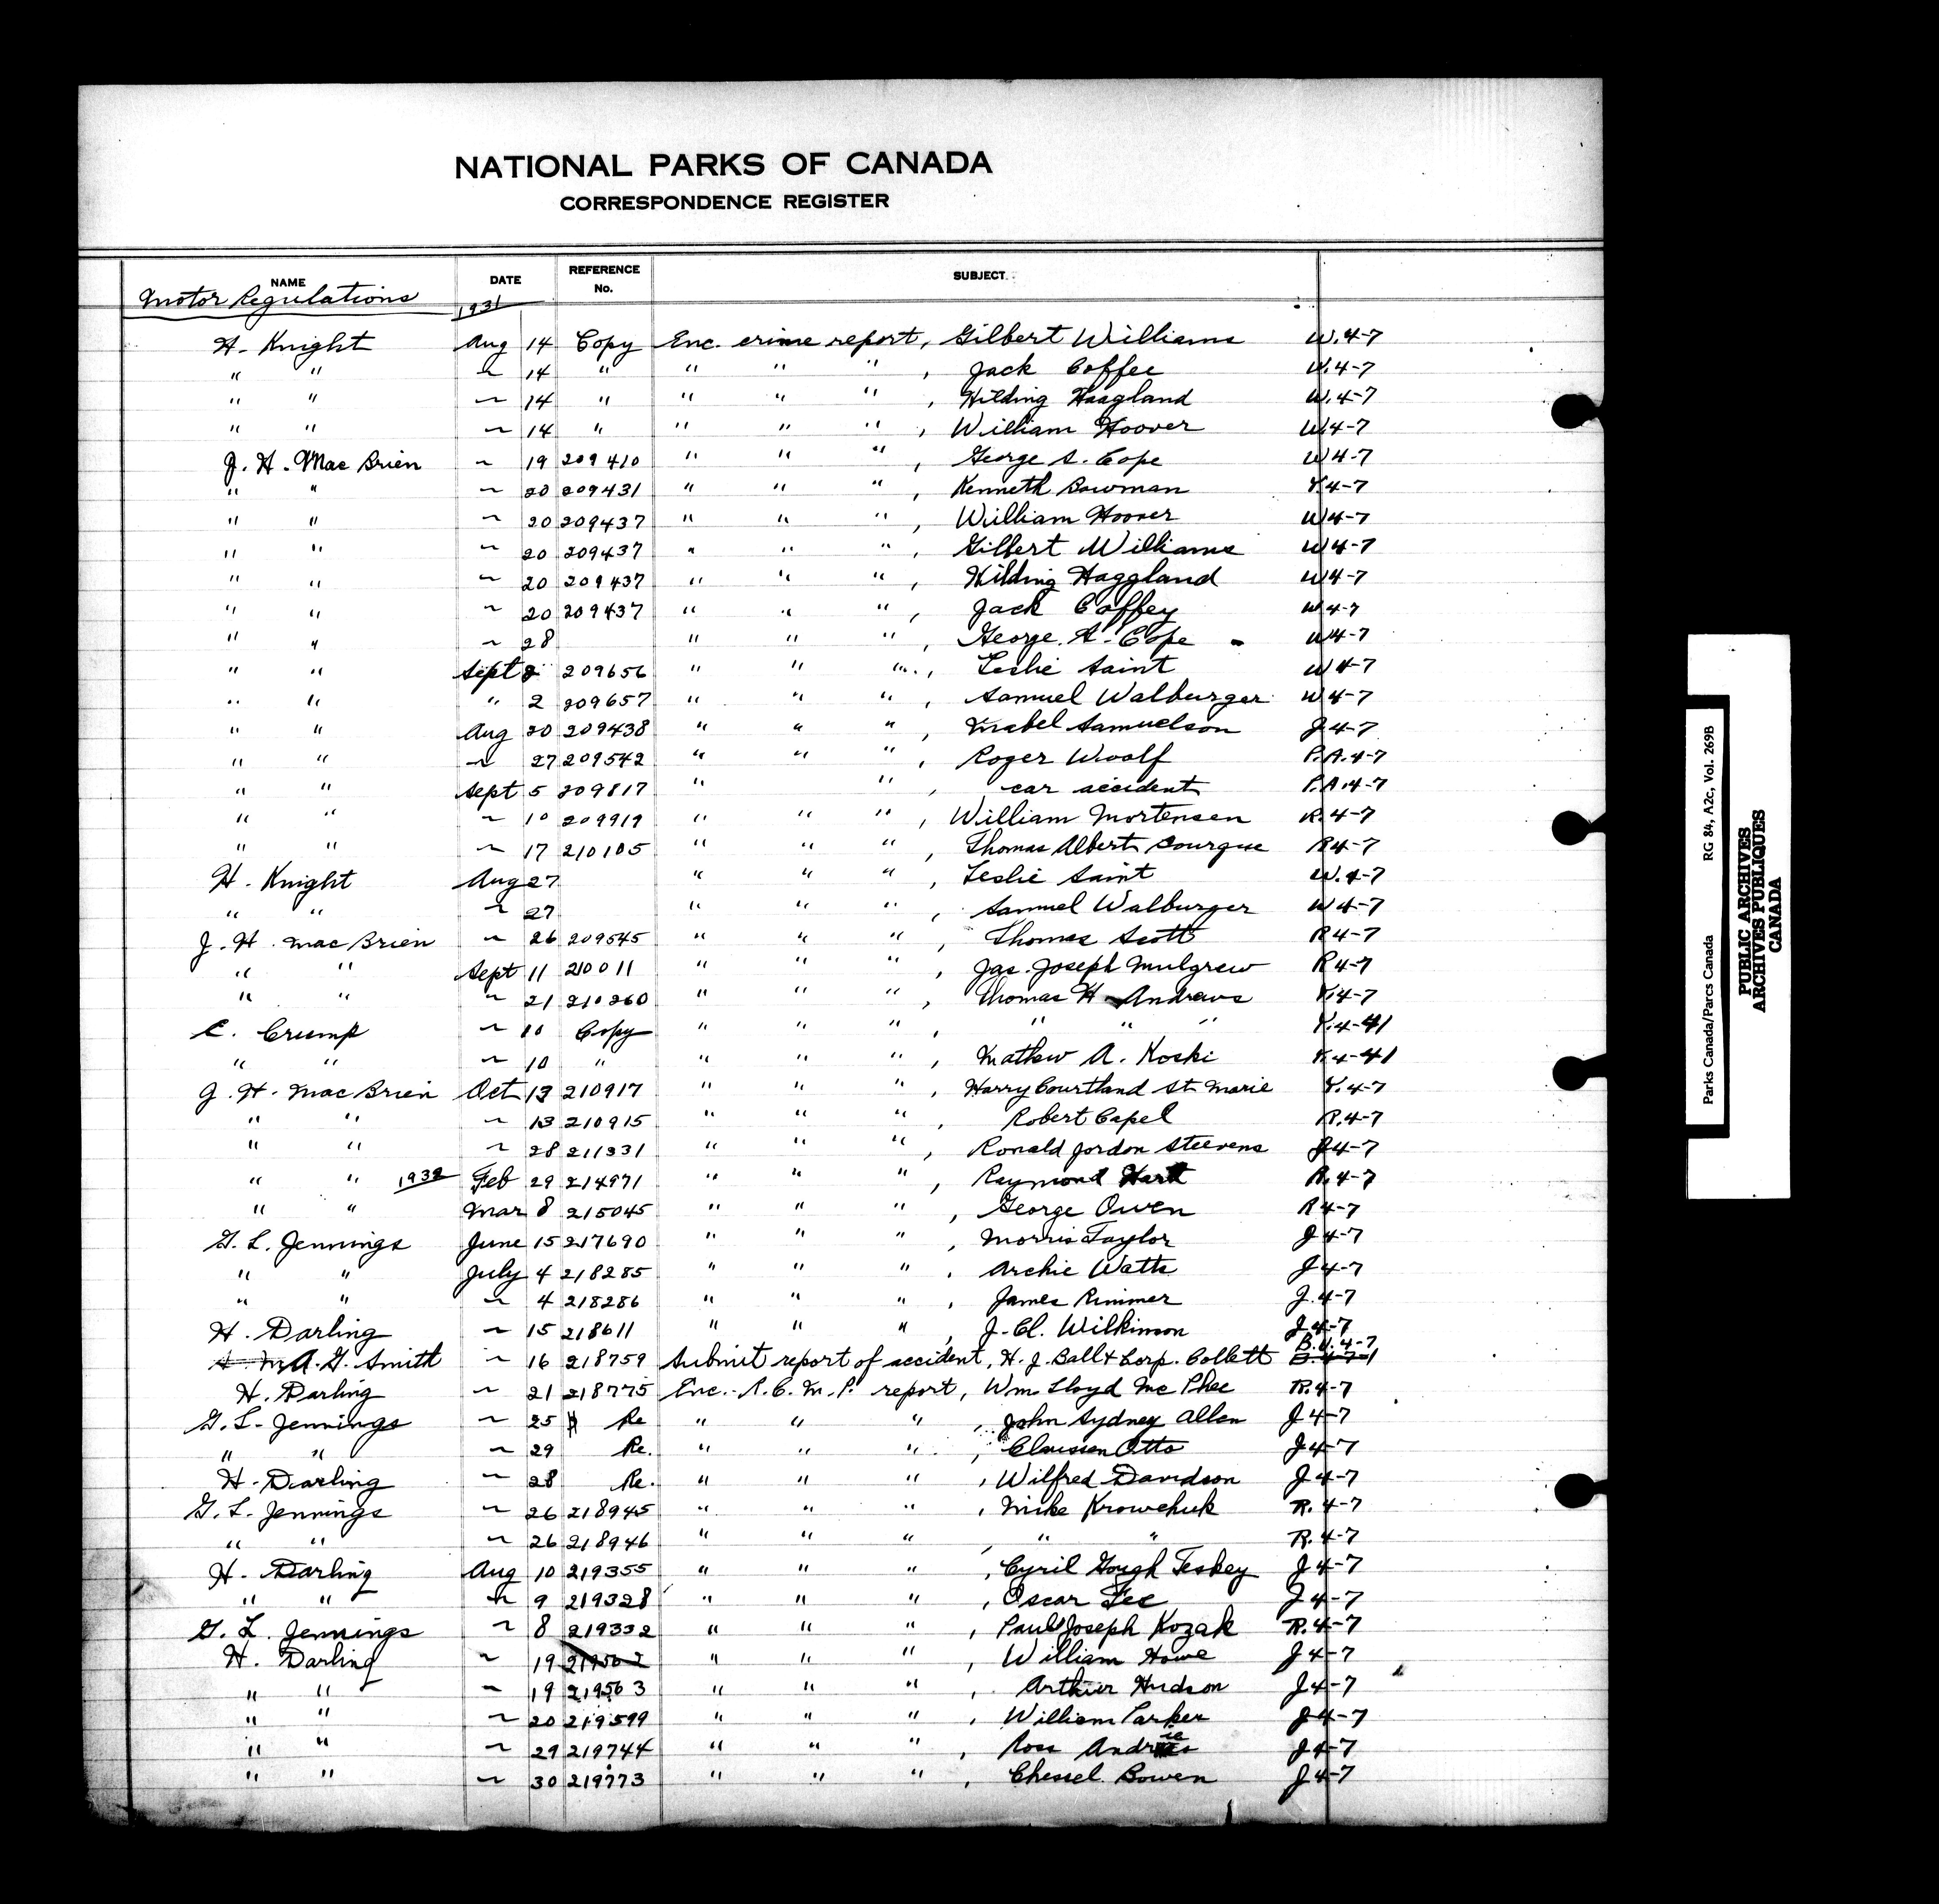 NATIONAL PARKS OF CANADA
CORRESPONDENCE REGISTER
NAME DATE REFERENCE No. SUBJECT
Motor Regulations 1931
H. Knight Aug 14 Copy Enc. crime report, Gilbert Williams W.4-7
" " ~ 14 " " " " , Jack Coffee W.4-7
" " ~ 14 " " " " , Hilding Haagland W.4-7
" " ~ 14 " " " " , William Hoover W4-7
J. H. MacBrien ~ 19 209410 " " " , George A. Cope W4-7
" " ~ 20 209431 " " " , Kenneth Bowman Y.4-7
" " ~ 20 209437 " " " , William Hoover W4-7
" " ~ 20 209437 " " " , Gilbert Williams W4-7
" " ~ 20 209437 " " " , Hilding Haggland W4-7
" " ~ 20 209437 " " " , Jack Coffey W.4-7
" " ~ 28 " " " , George. A. Cope - W4-7
" " Sept 2 209656 " " " , Leslie Saint W4-7
" " " 2 209657 " " " , Samuel Walburger W.4-7
" " Aug 20 209438 " " " , Mabel Samuelson J.4-7
" " ~ 27 209542 " " " , Roger Woolf P.A.4-7
" " Sept 5 209817 " " , car accident P.A.4-7
" " ~ 10 209919 " " " , William Mortensen R.4-7
" " ~ 17 210105 " " " , Thomas Albert Bourque R4-7
H. Knight Aug 27 " " " , Leslie Saint W.4-7
" " ~ 27 " " " , Samuel Walburger W4-7
J. H. MacBrien ~ 26 209545 " " " , Thomas Scott R4-7
" " Sept 11 210011 " " " , Jas. Joseph Mulgrew R4-7
" " ~ 21 210260 " " " , Thomas H. Andrews Y.4-7
C. Crump ~ 10 Copy " " " , " " " Y.4-41
" " ~ 10 " " " " , Mathew A. Koski Y.4-41
J. H. MacBrien Oct 13 210917 " " " , Harry Courtland St. Marie Y.4-7
" " ~ 13 210915 " " " , Robert Capel R.4-7
" " ~ 28 211331 " " " , Ronald Jordon Steevens J4-7
" " 1932 Feb 29 214971 " " " , Raymond Hart R.4-7
" " Mar 8 215045 " " " , George Owen R4-7
G. L. Jennings June 15 217690 " " " , Morris Taylor J4-7
" " July 4 218285 " " " , Archie Watts J4-7
" " ~ 4 218286 " " " , James Rimmer J.4-7
H. Darling ~ 15 218611 " " " , J. Cl. Wilkinson J.4-7
A. G. Smith ~ 16 218759 Submit report of accident, H. J. Ball & Corp. Collett B.U.4-7
H. Darling ~ 21 218775 Enc. R.C.M.P. report, Wm Lloyd McPhee R.4-7
G. L. Jennings ~ 25 Re " " " , John Sydney Allen J4-7
" " ~ 29 Re. " " " , Claussen Otto J4-7
H. Darling ~ 28 Re. " " " , Wilfred Davidson J4-7
G. L. Jennings ~ 26 218945 " " " , Mike Krowchuk R.4-7
" " ~ 26 218946 " " " , " " R.4-7
H. Darling Aug 10 219355 " " " , Cyril Gough Teskey J4-7
" " ~ 9 219328 " " " , Oscar Fee J4-7
G. L. Jennings ~ 8 219332 " " " , Paul Joseph Kozak R.4-7
H. Darling ~ 19 219562 " " " , William Howe J4-7
" " ~ 19 219563 " " " , Arthur Hudson J4-7
" " ~ 20 219599 " " " , William Parker J4-7
" " ~ 29 219744 " " " , Ross Andrie J4-7
" " ~ 30 219773 " " " , Chessel Bowen J4-7
Parks Canada/Parcs Canada RG 84, A2c, Vol. 269B
PUBLIC ARCHIVES
ARCHIVES PUBLIQUES
CANADA